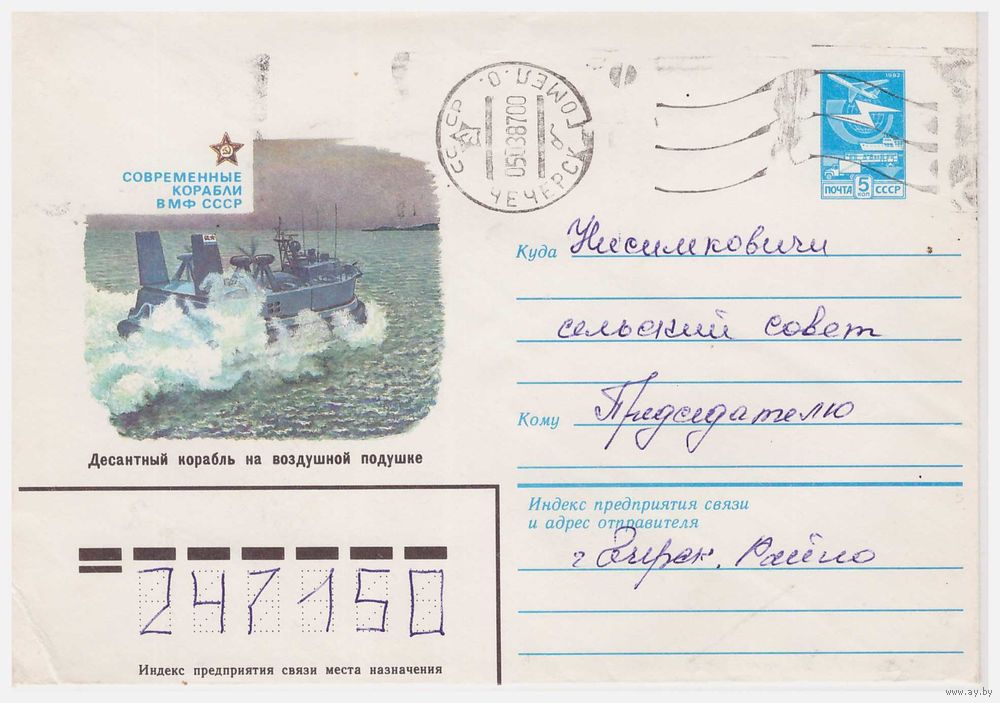 СОВРЕМЕННЫЕ
КОРАБЛИ
ВМФ СССР
Десантный корабль на воздушной подушке
СССР
ГОМЕЛ.О.
ЧЕЧЕРСК
1982
ПОЧТА 5 КОП СССР
Куда Нисимковичи
сельский совет
Кому Председателю
Индекс предприятия связи
и адрес отправителя
г Райпо
247150
Индекс предприятия связи места назначения
www.ay.by